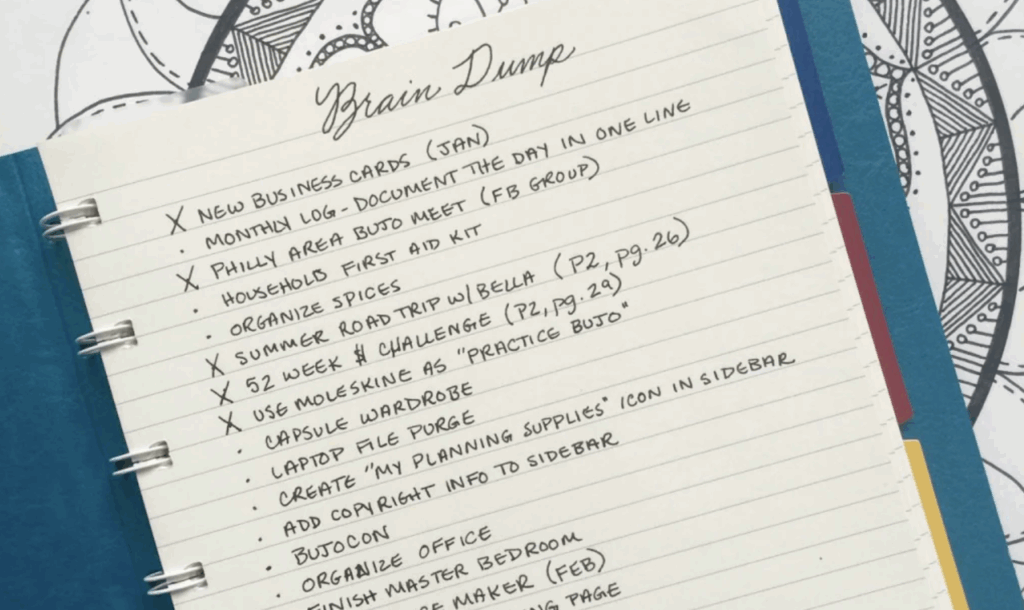 Brain Dump
X NEW BUSINESS CARDS (JAN)
· MONTHLY LOG - DOCUMENT THE DAY IN ONE LINE
X PHILLY AREA BUJO MEET (FB GROUP)
· HOUSEHOLD FIRST AID KIT
· ORGANIZE SPICES
X SUMMER ROAD TRIP W/ BELLA (P2, pg. 26)
X 52 WEEK $ CHALLENGE (P2, pg. 29)
X USE MOLESKINE AS "PRACTICE BUJO"
· CAPSULE WARDROBE
· LAPTOP FILE PURGE
· CREATE "MY PLANNING SUPPLIES" ICON IN SIDEBAR
· ADD COPYRIGHT INFO TO SIDEBAR
· BUJOCON
· ORGANIZE OFFICE
FINISH MASTER BEDROOM
MAKER (FEB)
PAGE